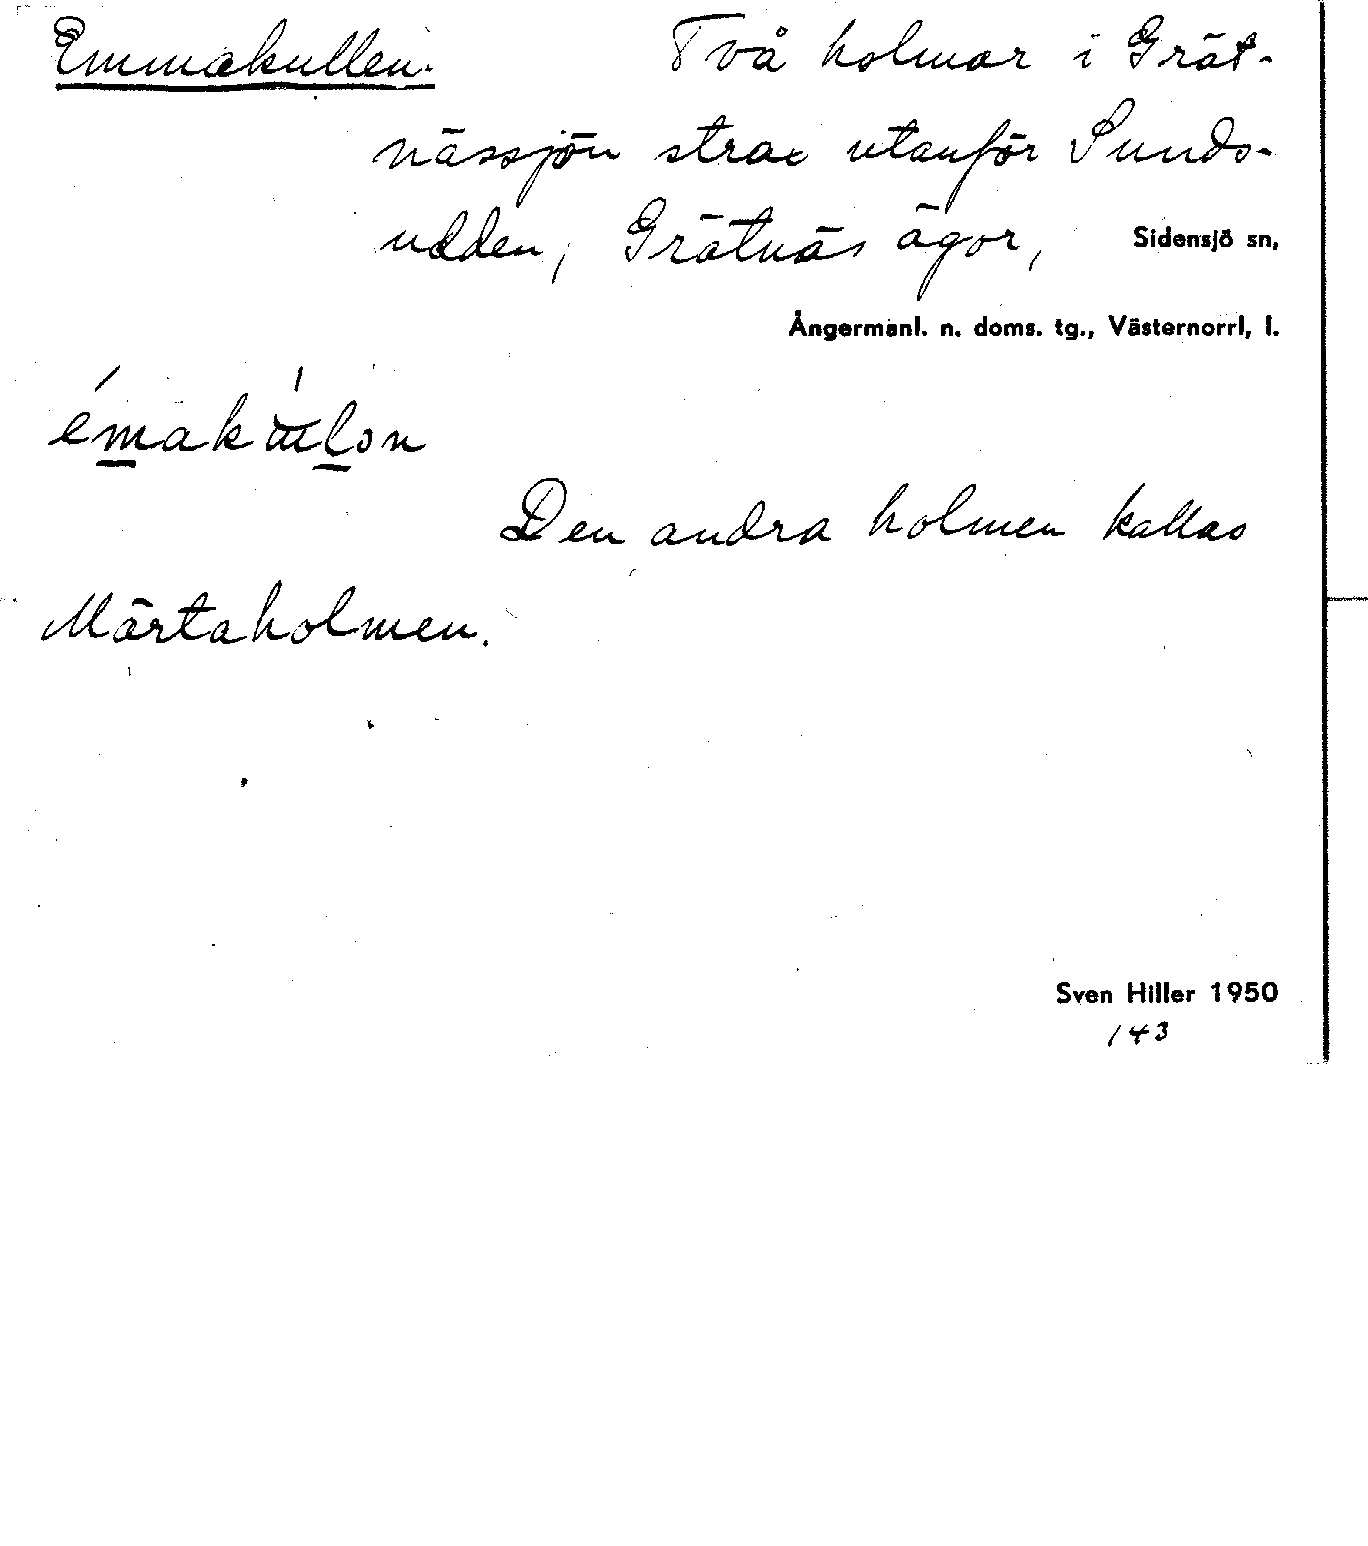 Emmakullen. Två holmar i Grät-
nässjön strax utanför Sunds-
udden, Grätnäs ägor, Sidensjö sn,
Ångermanl. n. doms. tg., Västernorrl, l.
Den andra holmen kallas
Märtaholmen.
Sven Hiller 1950
143